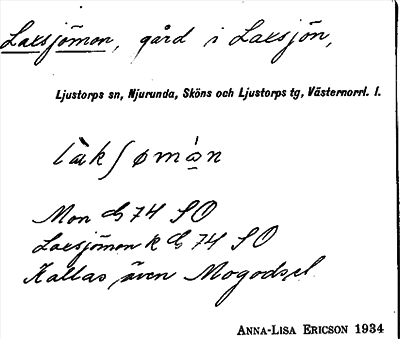 Laxsjömon, gård i Laxsjön,
Ljustorps sn, Njurunda, Sköns och Ljustorps tg, Västernorrl. l.
Mon 74 SO
Laxsjömon k 74 SO
Kallas även Mogodset
ANNA-LISA ERICSON 1934